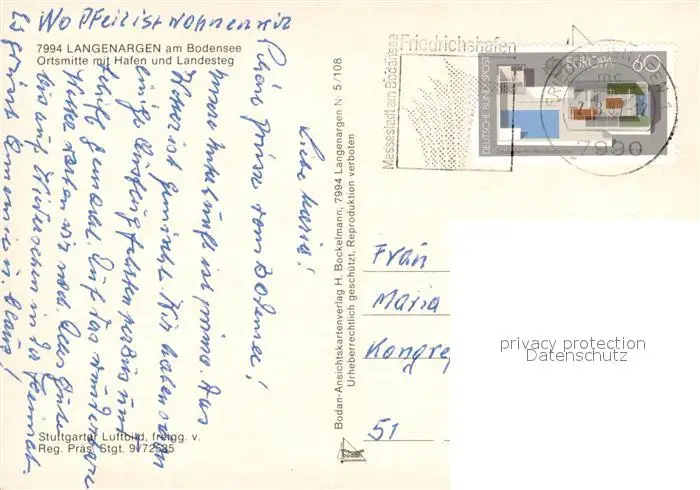 Wo Pfeil ist wohnen wir
7994 LANGENARGEN am Bodensee
Ortsmitte mit Hafen und Landesteg
Liebe Maria!
Schöne Grüsse vom Bodensee!
unsere Unterkunft ist prima. Das
Wetter ist gemischt. Wir haben schon
einige Ausflugfahrten per Bus und
Schiff gemacht. Auf das
werden wir noch Alles Gute
bis auf Wiedersehen in der Heimat.
Es grüsst u. Klaus!
Stuttgarter Luftbild, freigg. v.
Reg. Präs. Stgt. 9/72535
Bodan-Ansichtskartenverlag H. Bockelmann, 7994 Langenargen Nr. 5/108
Urheberrechtlich geschützt, Reproduktion verboten
bodan
Friedrichshafen
Messestadt am Bodensee
DEUTSCHE BUNDESPOST
EUROPA
60
FRIEDRICHSHAFEN 1
mc
7990
Frau
Maria
Kongre
51
privacy protection
Datenschutz